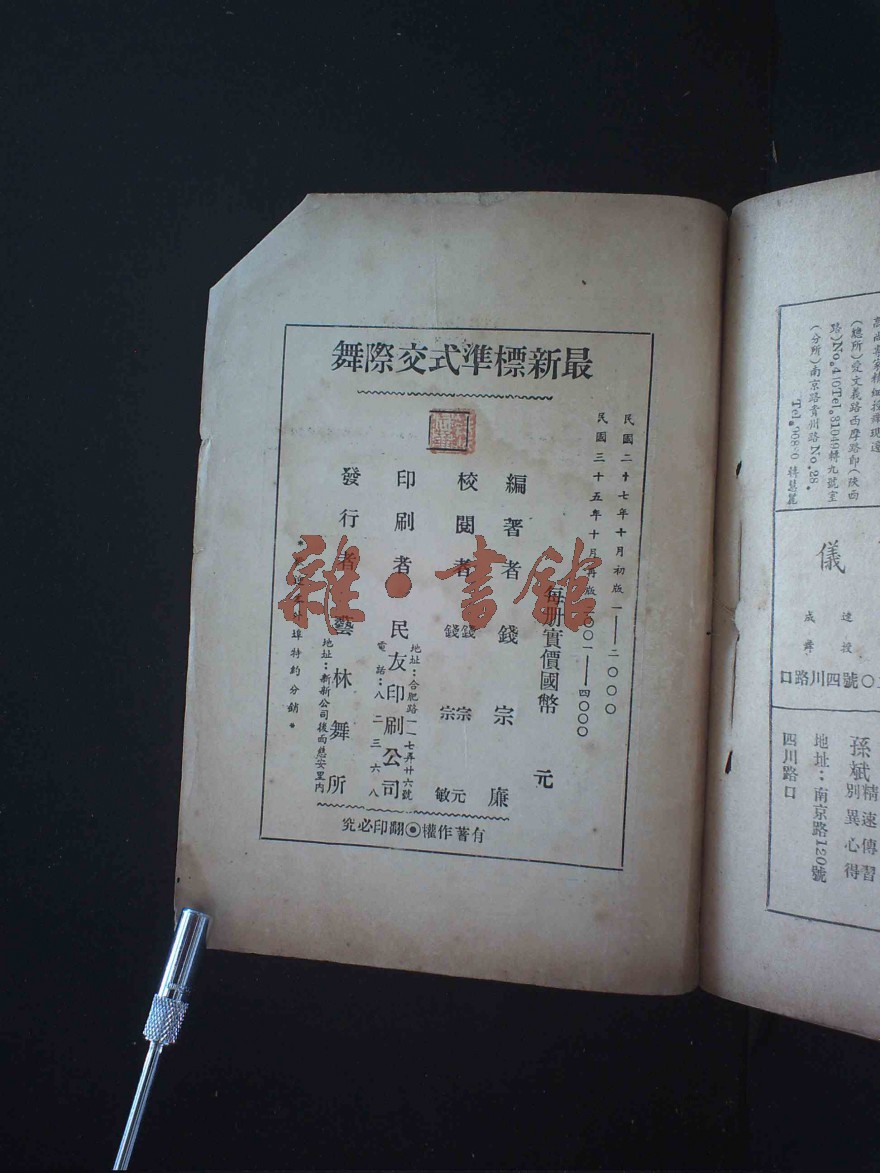 最新標準式交際舞
民國二十七年十月初版一——二〇〇〇
民國三十五年十月再版二〇〇一——四〇〇〇
每册實價國幣 元
編著者 錢宗廉
校閱者 錢宗元
錢宗敏
印刷者 民友印刷公司
地址：合肥路一一七弄廿六號
電話：八二三六八
發行者 藝林舞所
地址：新新公司後面慈安里內
外埠特約分銷
有著作權◉翻印必究
雜·書館
（總所）愛文義路西摩路卽（陝西
路）No.410Tel.31049轉九號室
（分所）南京路貴州路No.28.
儀
達授
成舞
號四川路口
孫斌
精速傳習
別異心得
地址：南京路120號
四川路口